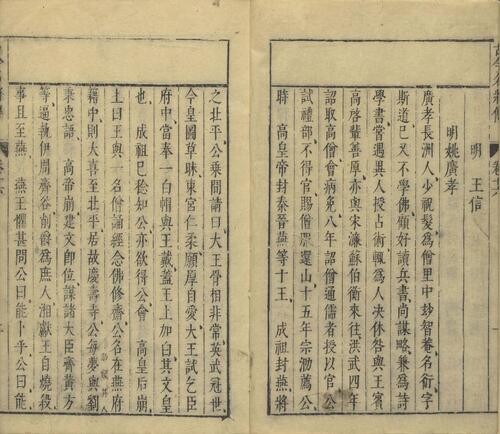 明 王信
明姚廣孝
廣孝長洲人少祝髮為僧里中妙智菴名衍字
斯道已又不學佛顧好讀兵書尚謀略兼為詩
學書嘗遇異人授占術輒為人决休咎與王賓
高啓輩善厚亦與宋濂蘇伯衡來往洪武四年
詔取高僧會病免八年詔僧通儒者授以官公
試禮部不得官賜僧服還山十五年宗泐薦公
時 高皇帝封秦晉燕等十王 成祖封燕將
之北平公乘間請曰大王骨相非常英武冠世
今皇圖草昧東宮仁柔願厚自愛大王試乞臣
府中當奉一白帽與王戴蓋王上加白其文皇
也 成祖已稔知公亦欲得公會 高皇后崩
上曰王與一名僧誦經念佛修齋公名在燕府
籍中則大喜至北平居故慶壽寺公每夢與劉
秉忠語 高帝崩建文即位謀諸大臣齊黃方
等逼執伊周齊谷削爵為庶人湘獻王自燒殺
事且至燕 燕王懼甚問公曰能卜乎公曰能